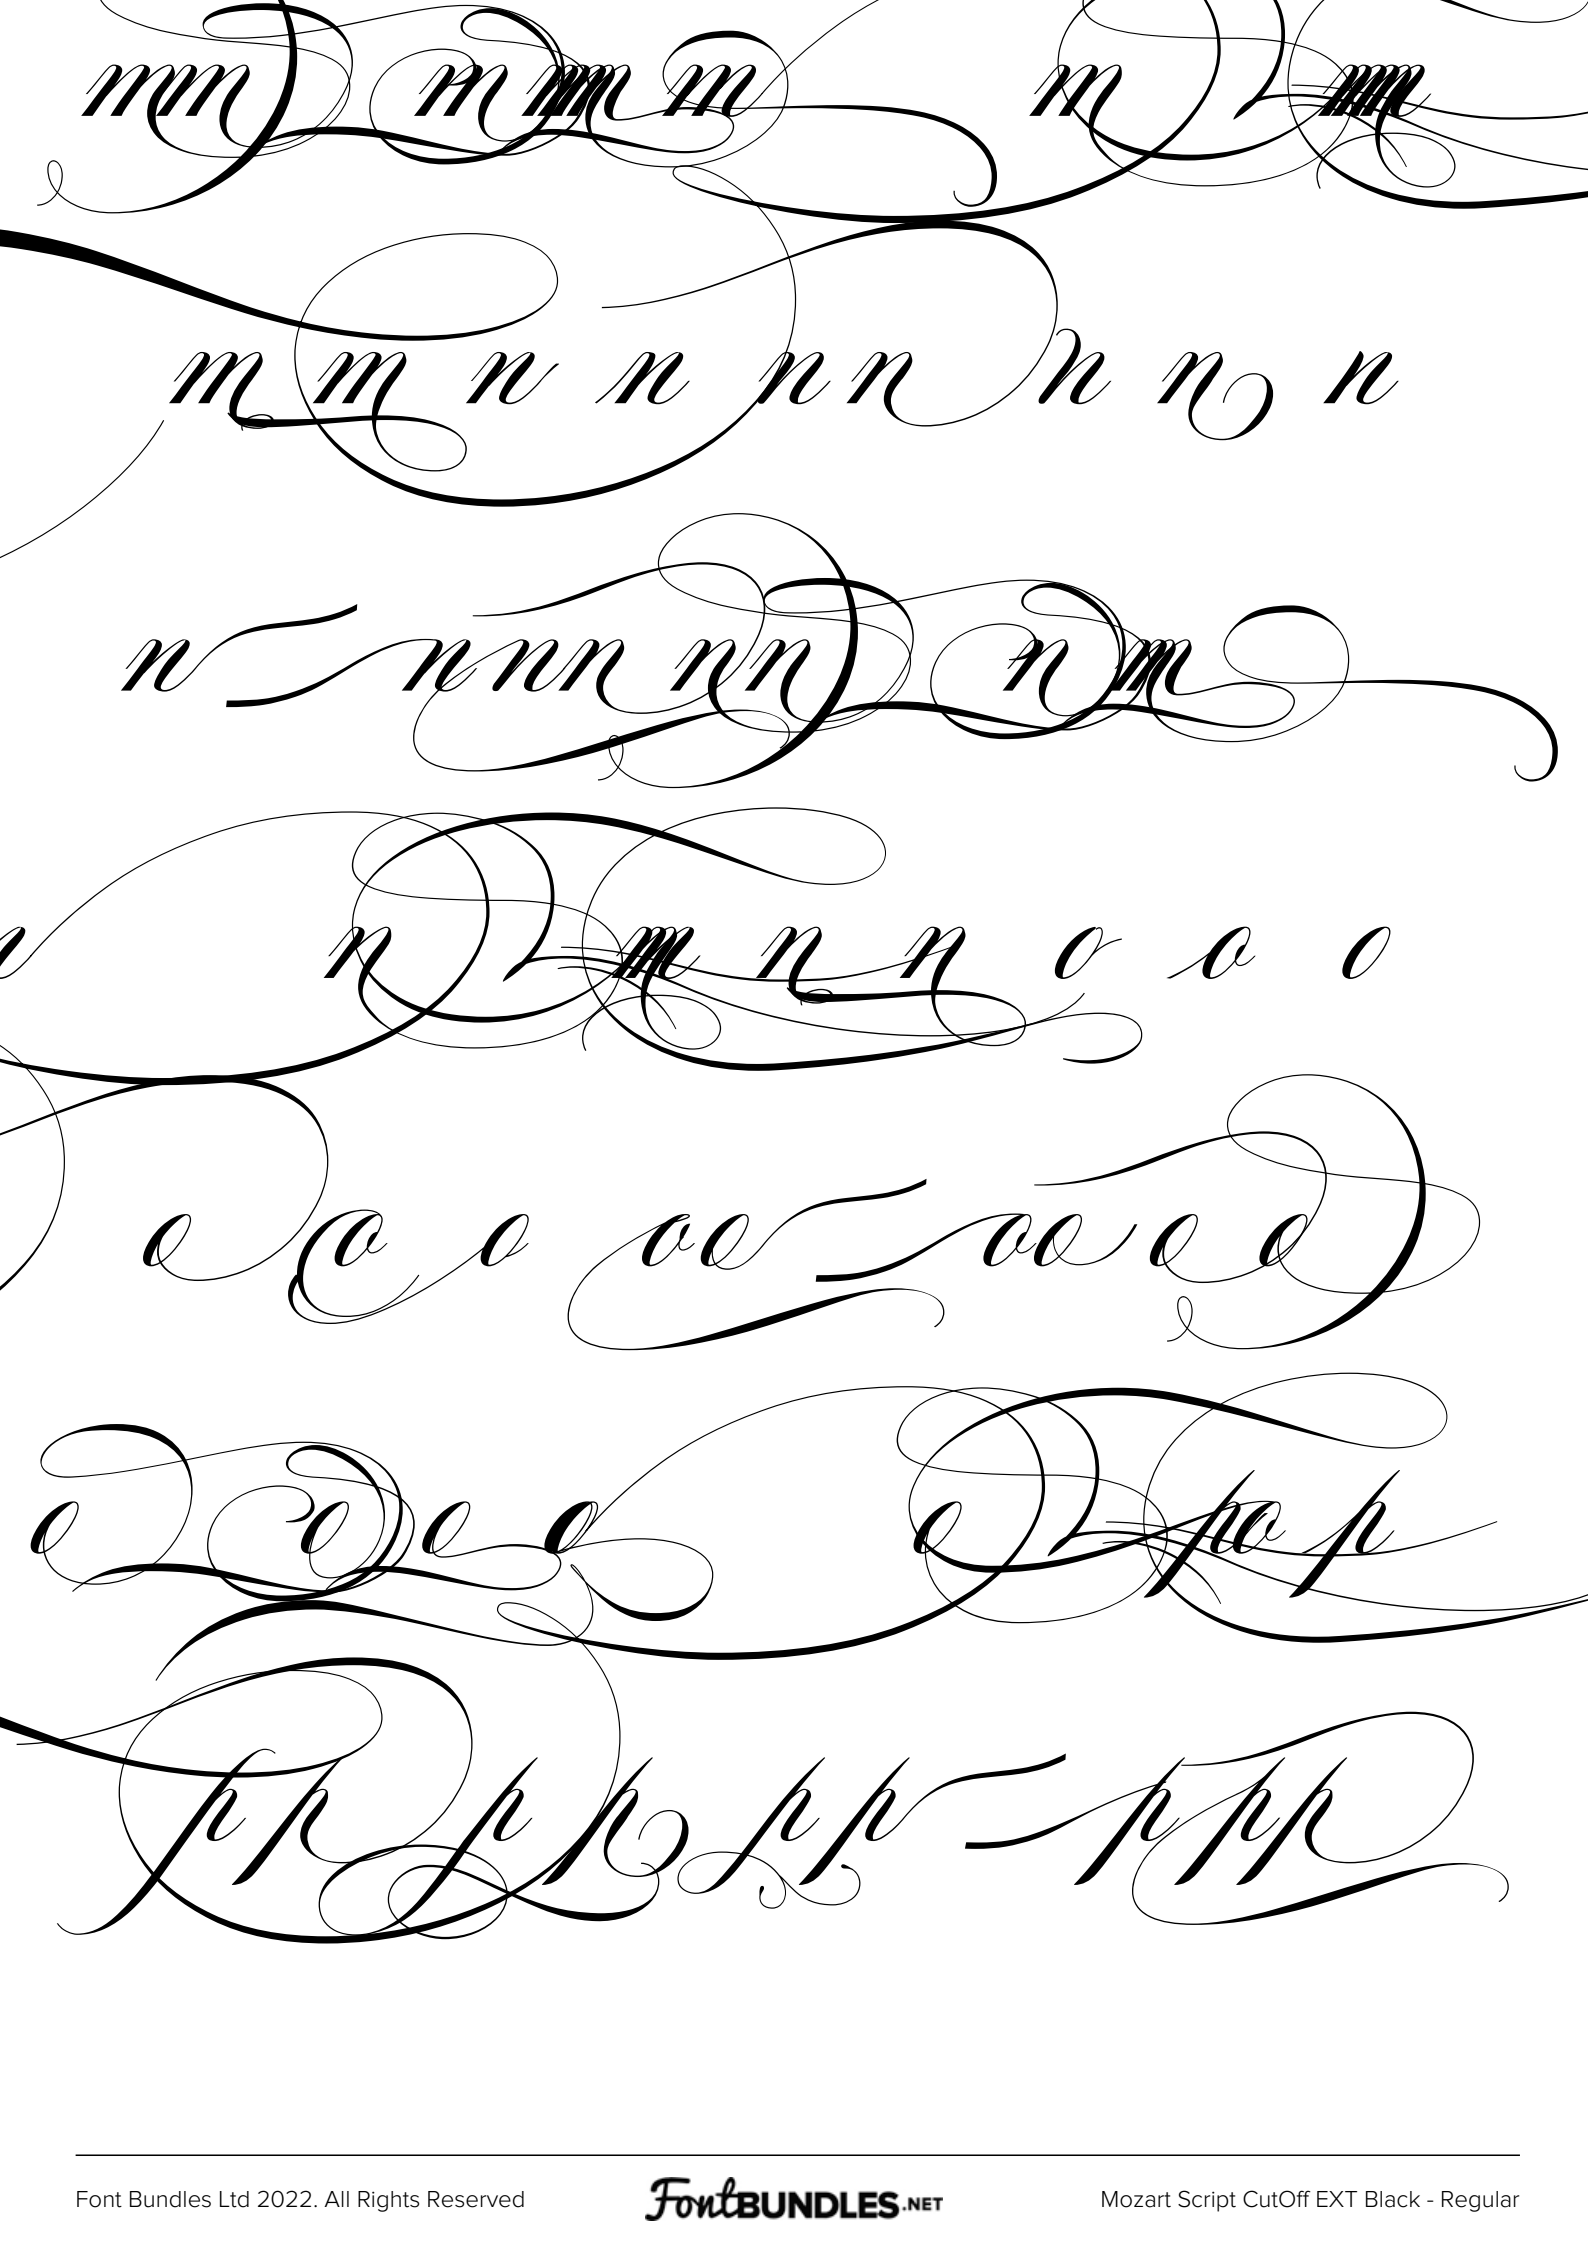 m m m m m m
m m n n n n n n n
n n n n n n n n
n n n n o o o
o o o o o o o o o
o o o o o p o p
p p p p p p p p p
Font Bundles Ltd 2022. All Rights Reserved
FontBUNDLES.NET
Mozart Script CutOff EXT Black - Regular